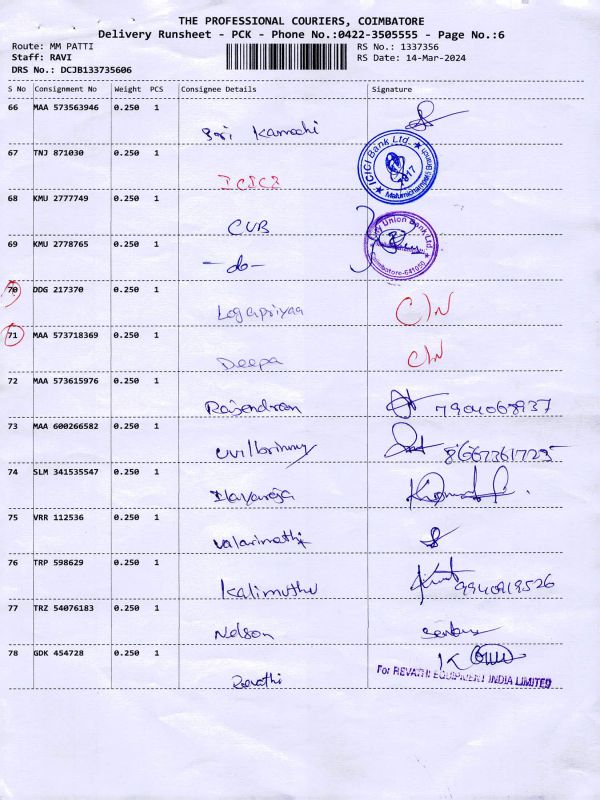 THE PROFESSIONAL COURIERS, COIMBATORE
Delivery Runsheet - PCK - Phone No.:0422-3505555 - Page No.:6
Route: MM PATTI RS No.: 1337356
Staff: RAVI RS Date: 14-Mar-2024
DRS No.: DCJB133735606
S No Consignment No Weight PCS Consignee Details Signature
66 MAA 573563946 0.250 1
Sri Kamachi
67 TNJ 871030 0.250 1
ICICI
ICICI Bank Ltd.
68 KMU 2777749 0.250 1
CUB
Union Bank Ltd.
Coimbatore-641050
69 KMU 2778765 0.250 1
-do-
70 DDG 217370 0.250 1
Logapriyaa C/N
71 MAA 573718369 0.250 1
Deepa C/N
72 MAA 573615976 0.250 1
Rajendran 7904068937
73 MAA 600266582 0.250 1
8667361725
74 SLM 341535547 0.250 1
Ilayaraja
75 VRR 112536 0.250 1
Valarmathi
76 TRP 598629 0.250 1
Kalimuthu 9940919526
77 TRZ 54076183 0.250 1
Nelson
78 GDK 454728 0.250 1
Revathi
For REVATHI EQUIPMENT INDIA LIMITED